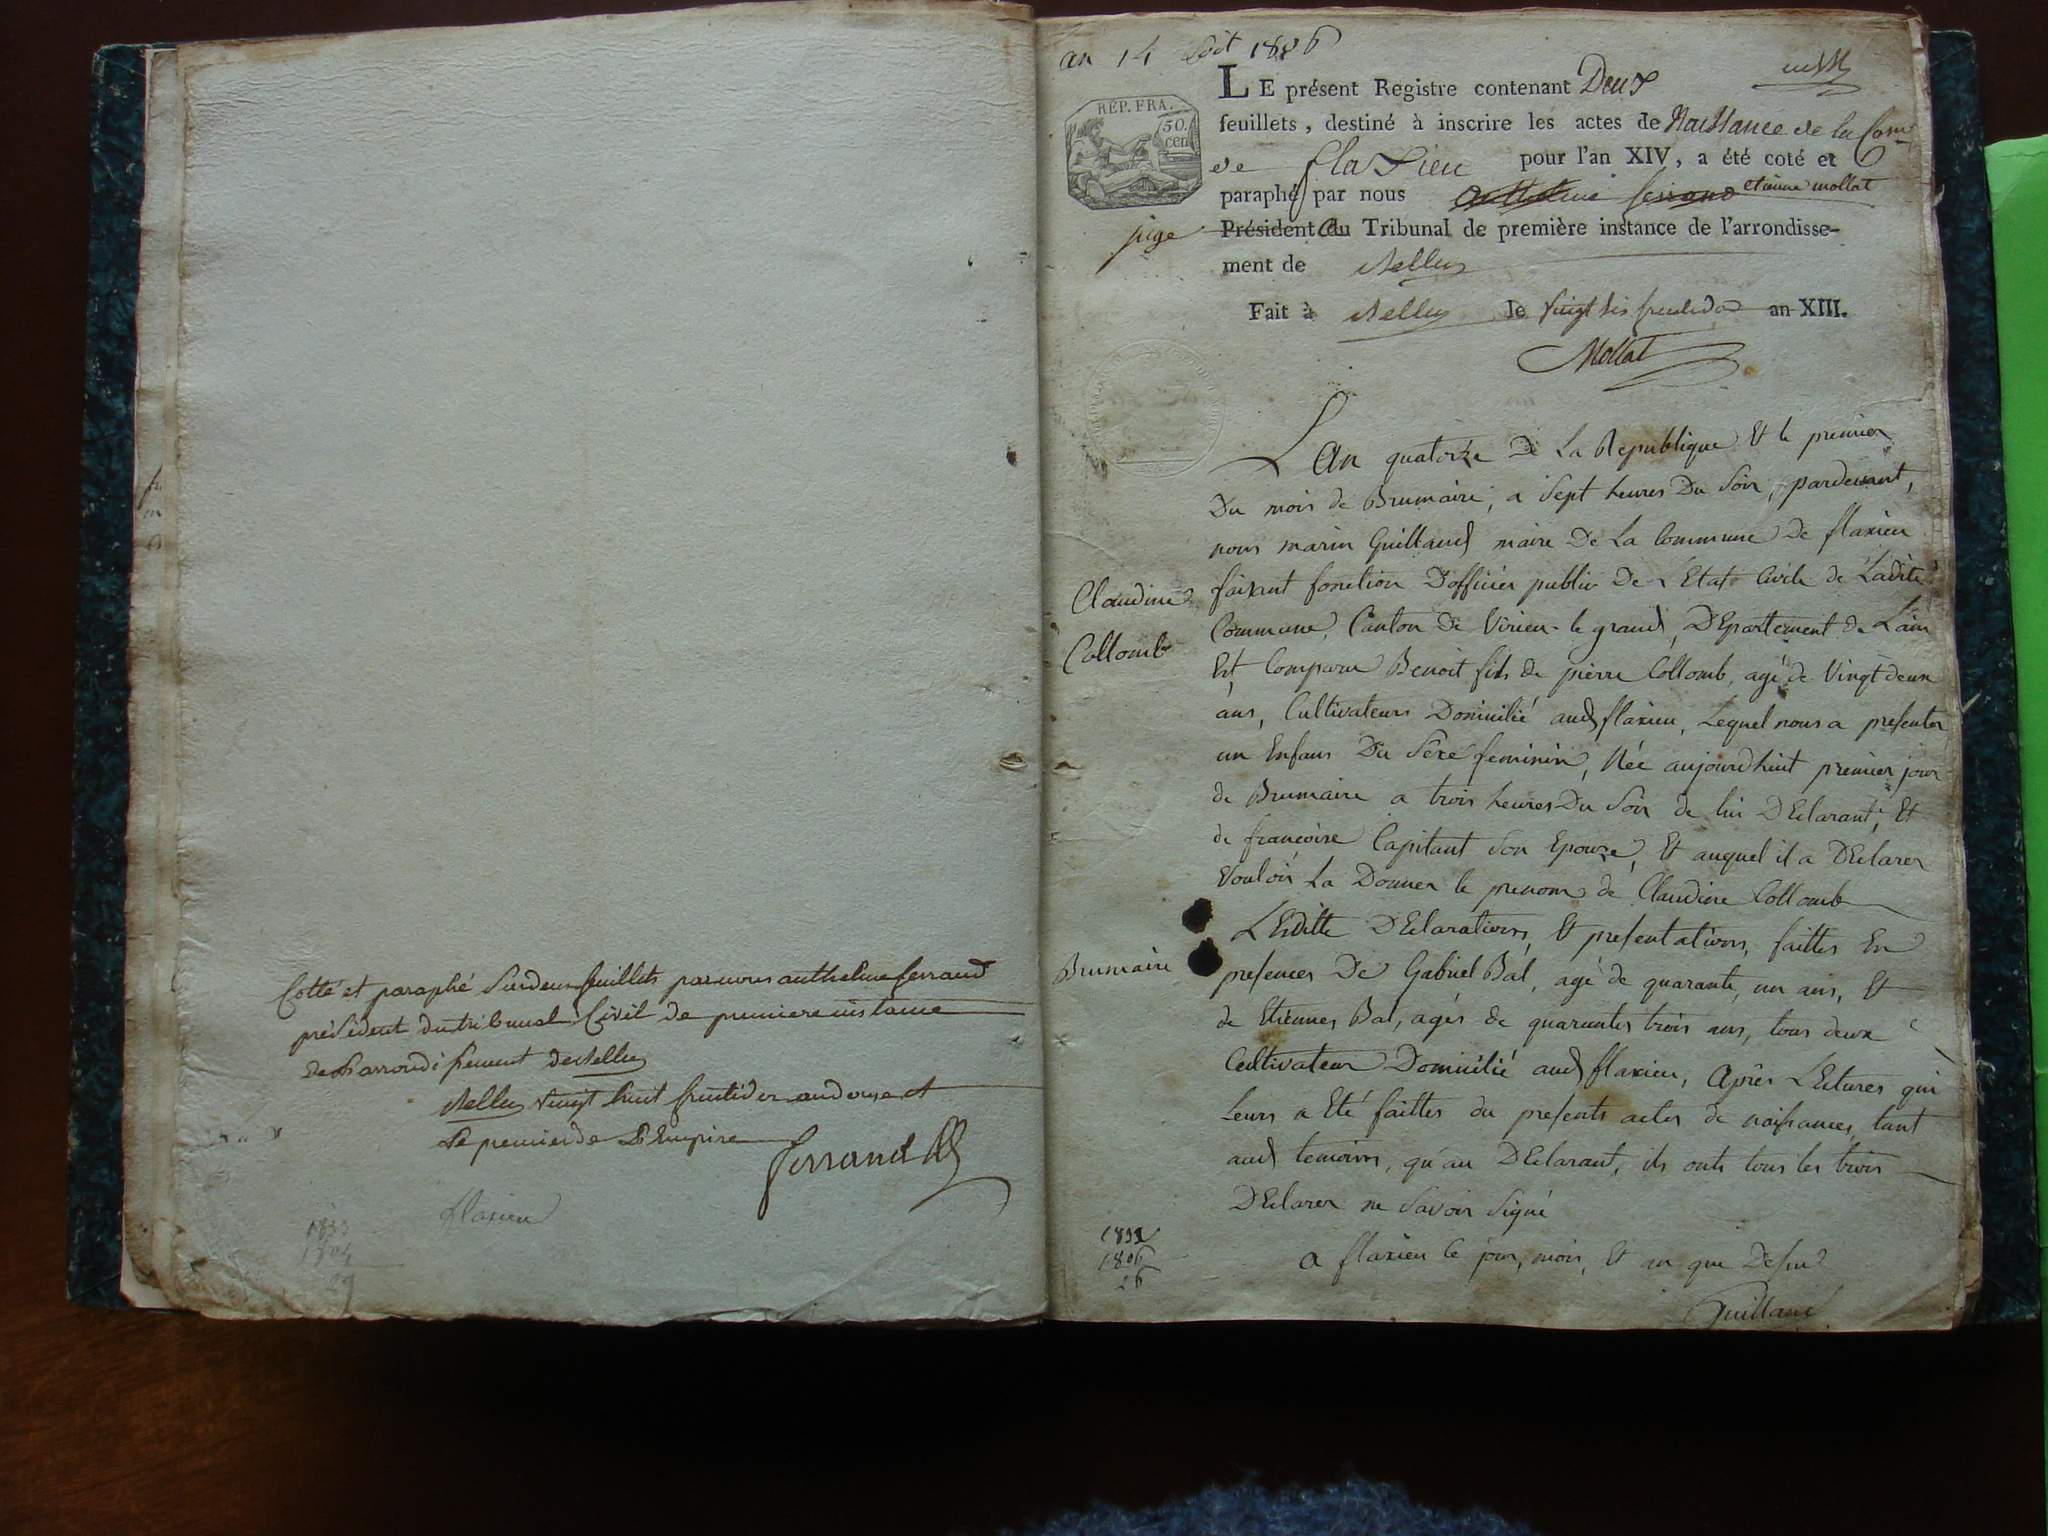 Cotté et paraphé Sur deux feuillets par nous anthelme ferrand
président du tribunal Civil de premiere instance
de L'arrondissement de Belley
Belley vingt huit fructidor an douze et
Le premier de L'Empire
ferrand
flaxieu
1833
1804
29
an 14 soit 1806
REP. FRA.
50.
cen
LE présent Registre contenant Deux
feuillets, destiné à inscrire les actes de Naissance de la Com
de flaxieu pour l'an XIV, a été coté et
paraphé par nous anthelme ferrand etienne mollat
juge Président du Tribunal de première instance de l'arrondisse-
ment de Belley
Fait à Belley le vingt six fructidor an XIII.
Mollat
L'an quatorze De La Republique Et le premier
Du mois de Brumaire, a Sept heures Du Soir, pardevant,
nous marin Guilland maire De La Commune De flaxieu
faisant fonction D'officier public De L'Etat Civile de Ladite
Claudine
Commune, Canton De Virieu-le grand, DEpartement De L'ain
Collomb
Est Comparu Benoit fils de pierre Collomb, agé de Vingt deux
ans, Cultivateurs Domicilié aud flaxieu, Lequel nous a presenter
un Enfans Du Sêxe feminin, Née aujourdhuit premier jour
de Brumaire a trois heures Du Soir de lui DEclarant, Et
de françoise Capitant Son Epouze, Et auquel il a DEclarer
Vouloir La Donner le prenom de Claudine Collomb
LEsditte DEclarations, Et presentations, faittes En
Brumaire
presences De Gabriel Bal, agé de quarante, un ans, Et
de Etiennes Bal, agés de quarantes trois ans, tous deux
Cultivateur Domicilié aud flaxieu, Après LEctures qui
Leurs a Eté faittes du presents actes de naissances, tant
aud temoins, qu'au DEclarant, ils onts tous les trois
DEclarer ne Savoir Signé
a flaxieu le jour, mois, Et an que Dessus
Guilland
1832
1806
26